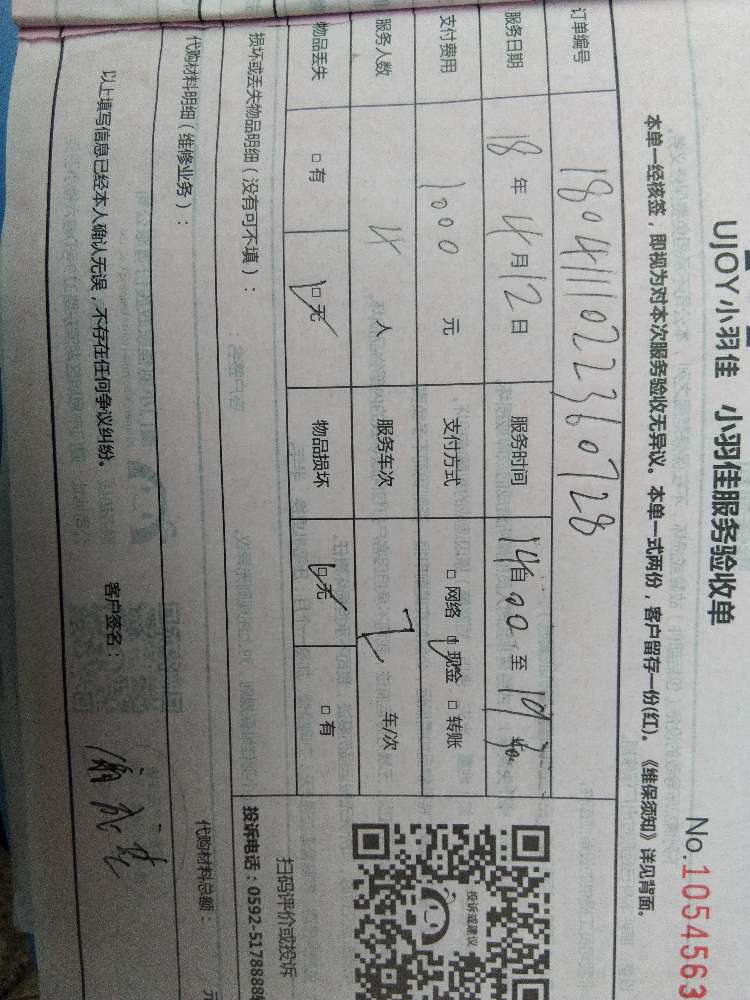 UJOY小羽佳 小羽佳服务验收单
No.1054563
本单一经核签，即视为对本次服务验收无异议。本单一式两份，客户留存一份(红)。《维保须知》详见背面。
订单编号 180411102236 0728
服务日期 18年4月12日 服务时间 自14:00至19
支付费用 1000元 支付方式 □网络 □现金 □转账
服务人数 4人 服务车次 2车/次
物品丢失 □有 □无 物品损坏 □无 □有
投诉或建议
扫码评价或投诉
投诉电话：0592-5178888
损坏或丢失物品明细（没有可不填）：
代购材料明细（维修业务）：
代购材料总额： 元
以上填写信息已经本人确认无误，不存在任何争议纠纷。 客户签名：